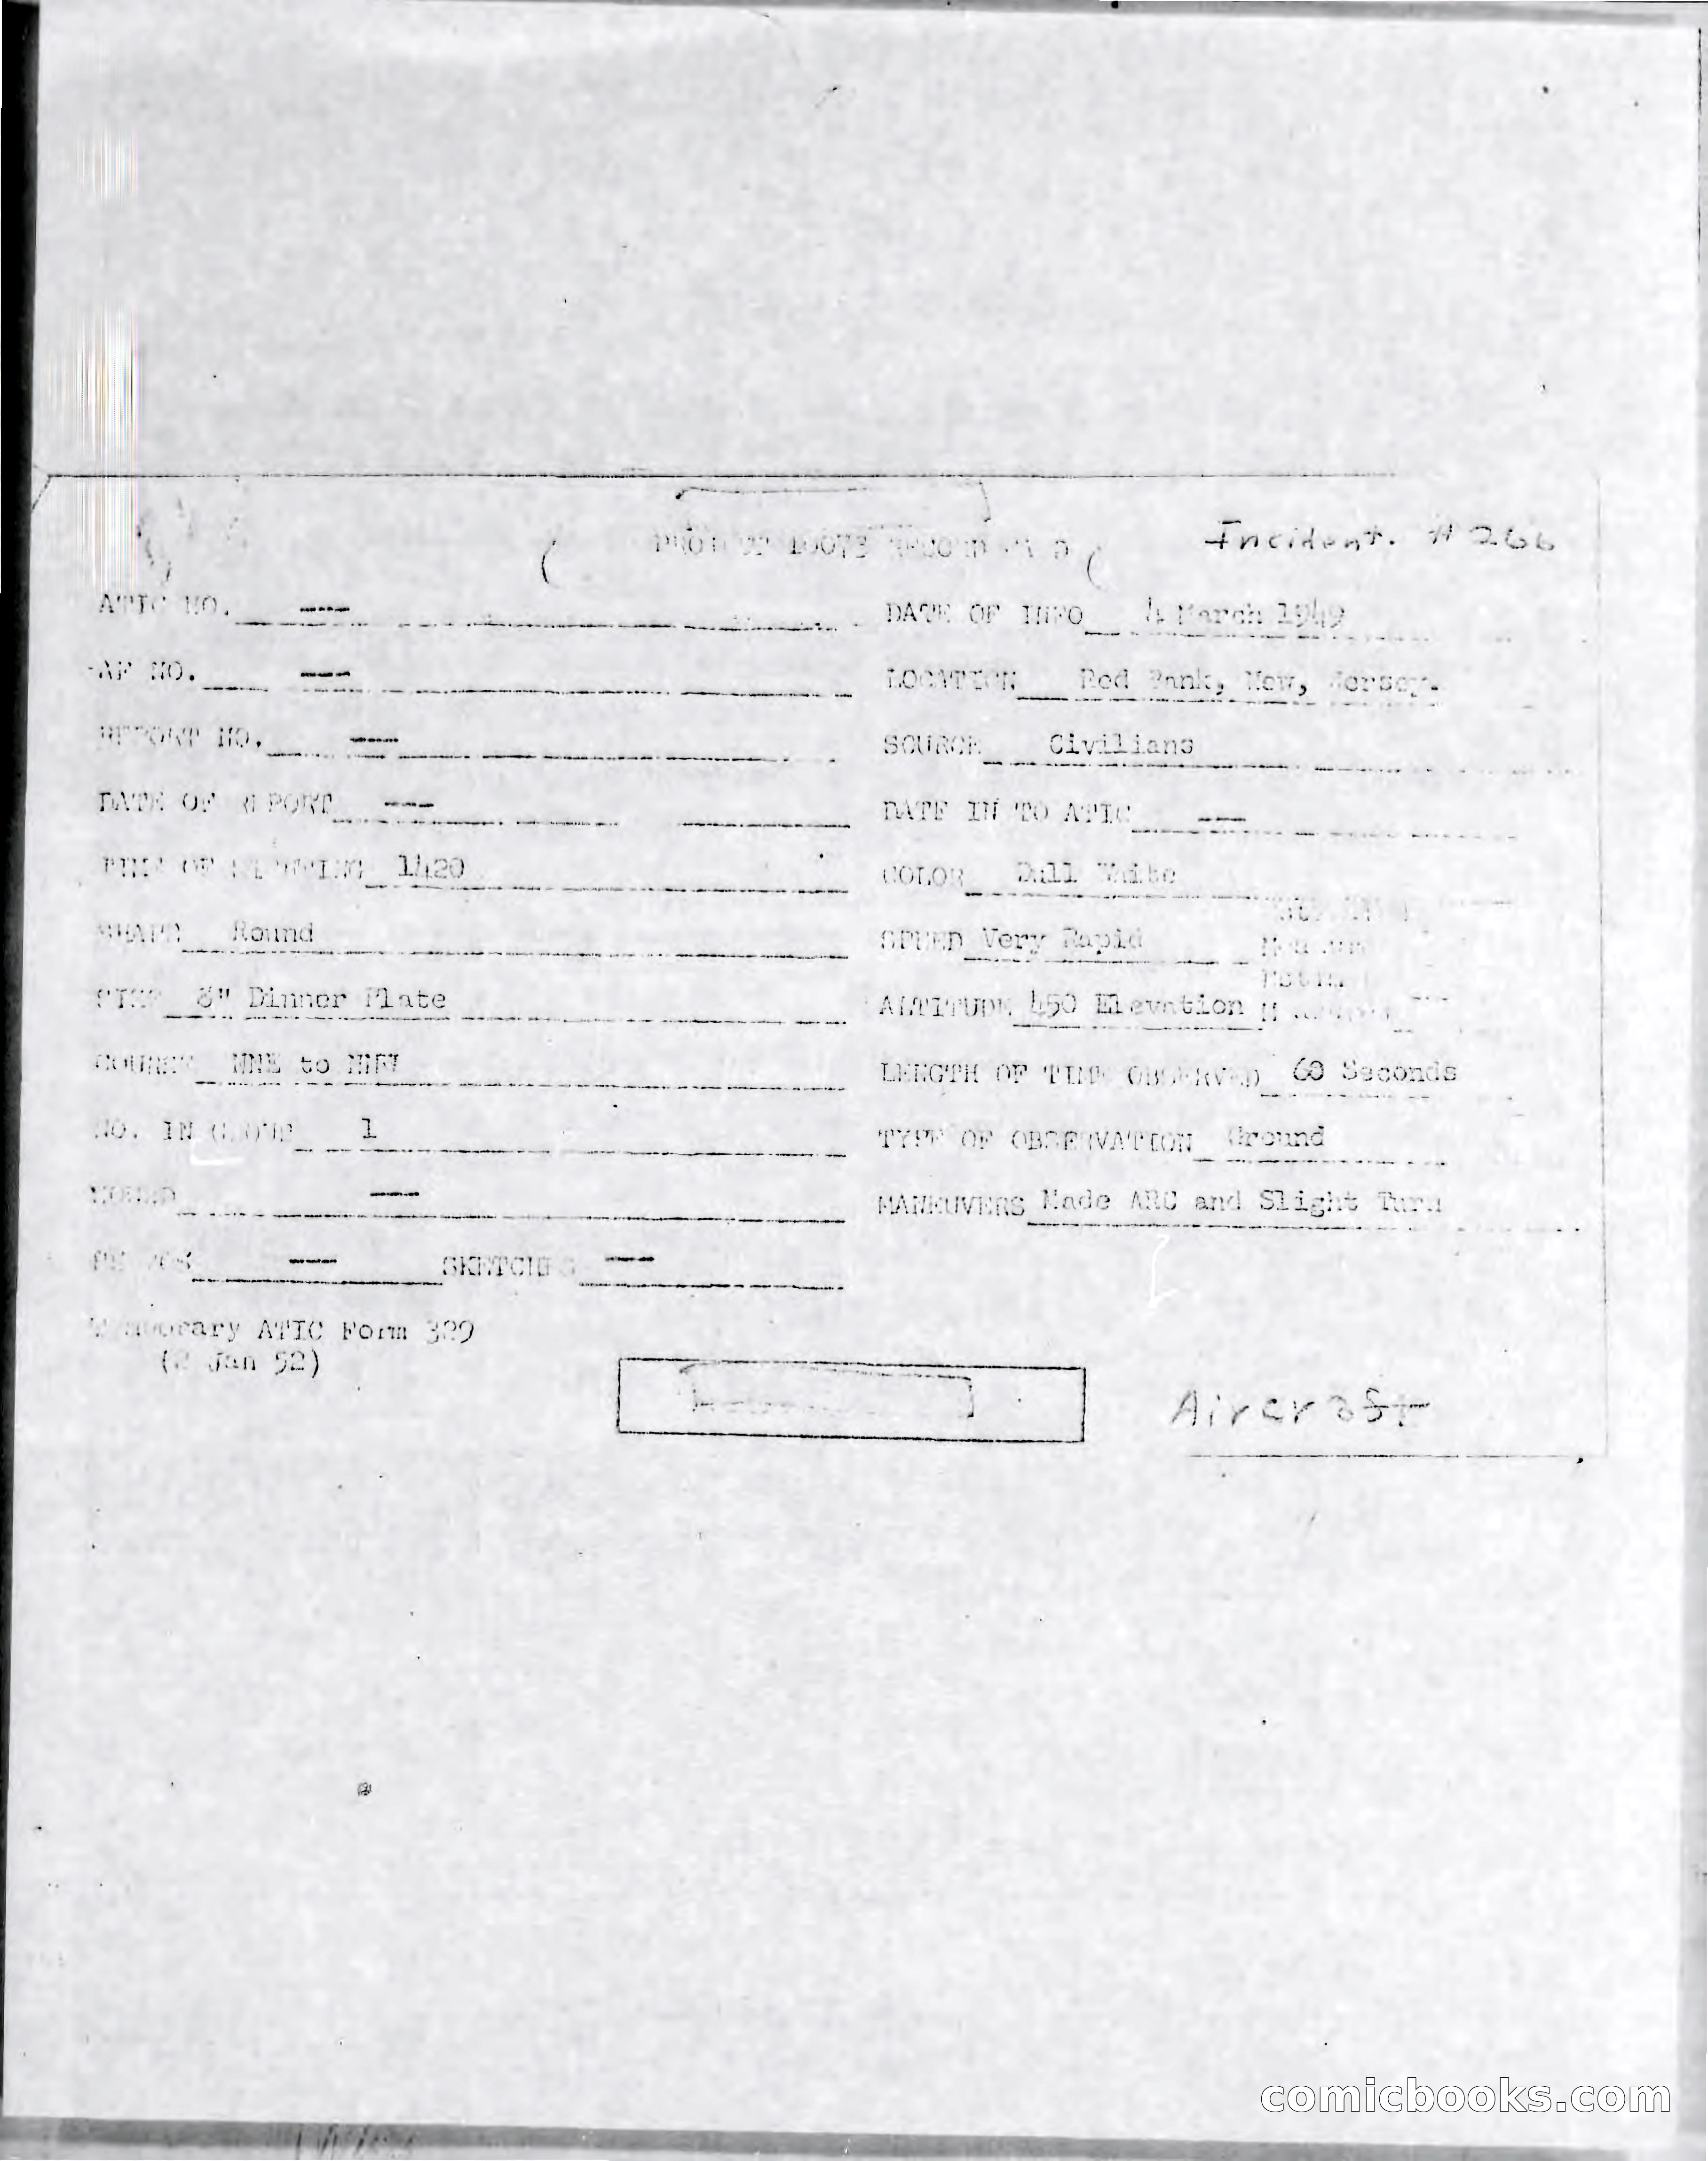 Incident. # 266
PROJECT 10073 RECORD CARD
ATIC NO. --- DATE OF INFO 4 March 1949
AF NO. --- LOCATION Red Bank, New, Jersey.
REPORT NO. --- SOURCE Civilians
DATE OF REPORT --- DATE IN TO ATIC ---
TIME OF SIGHTING 1420 COLOR Dull White
SHAPE Round SPEED Very Rapid
SIZE 8" Dinner Plate ALTITUDE 450 Elevation
COURSE NNE to NNW LENGTH OF TIME OBSERVED 60 Seconds
NO. IN GROUP 1 TYPE OF OBSERVATION Ground
SOUND --- MANEUVERS Made ARC and Slight Turn
PHOTOS --- SKETCHES ---
Temporary ATIC Form 329
(2 Jan 52)
Aircraft
comicbooks.com